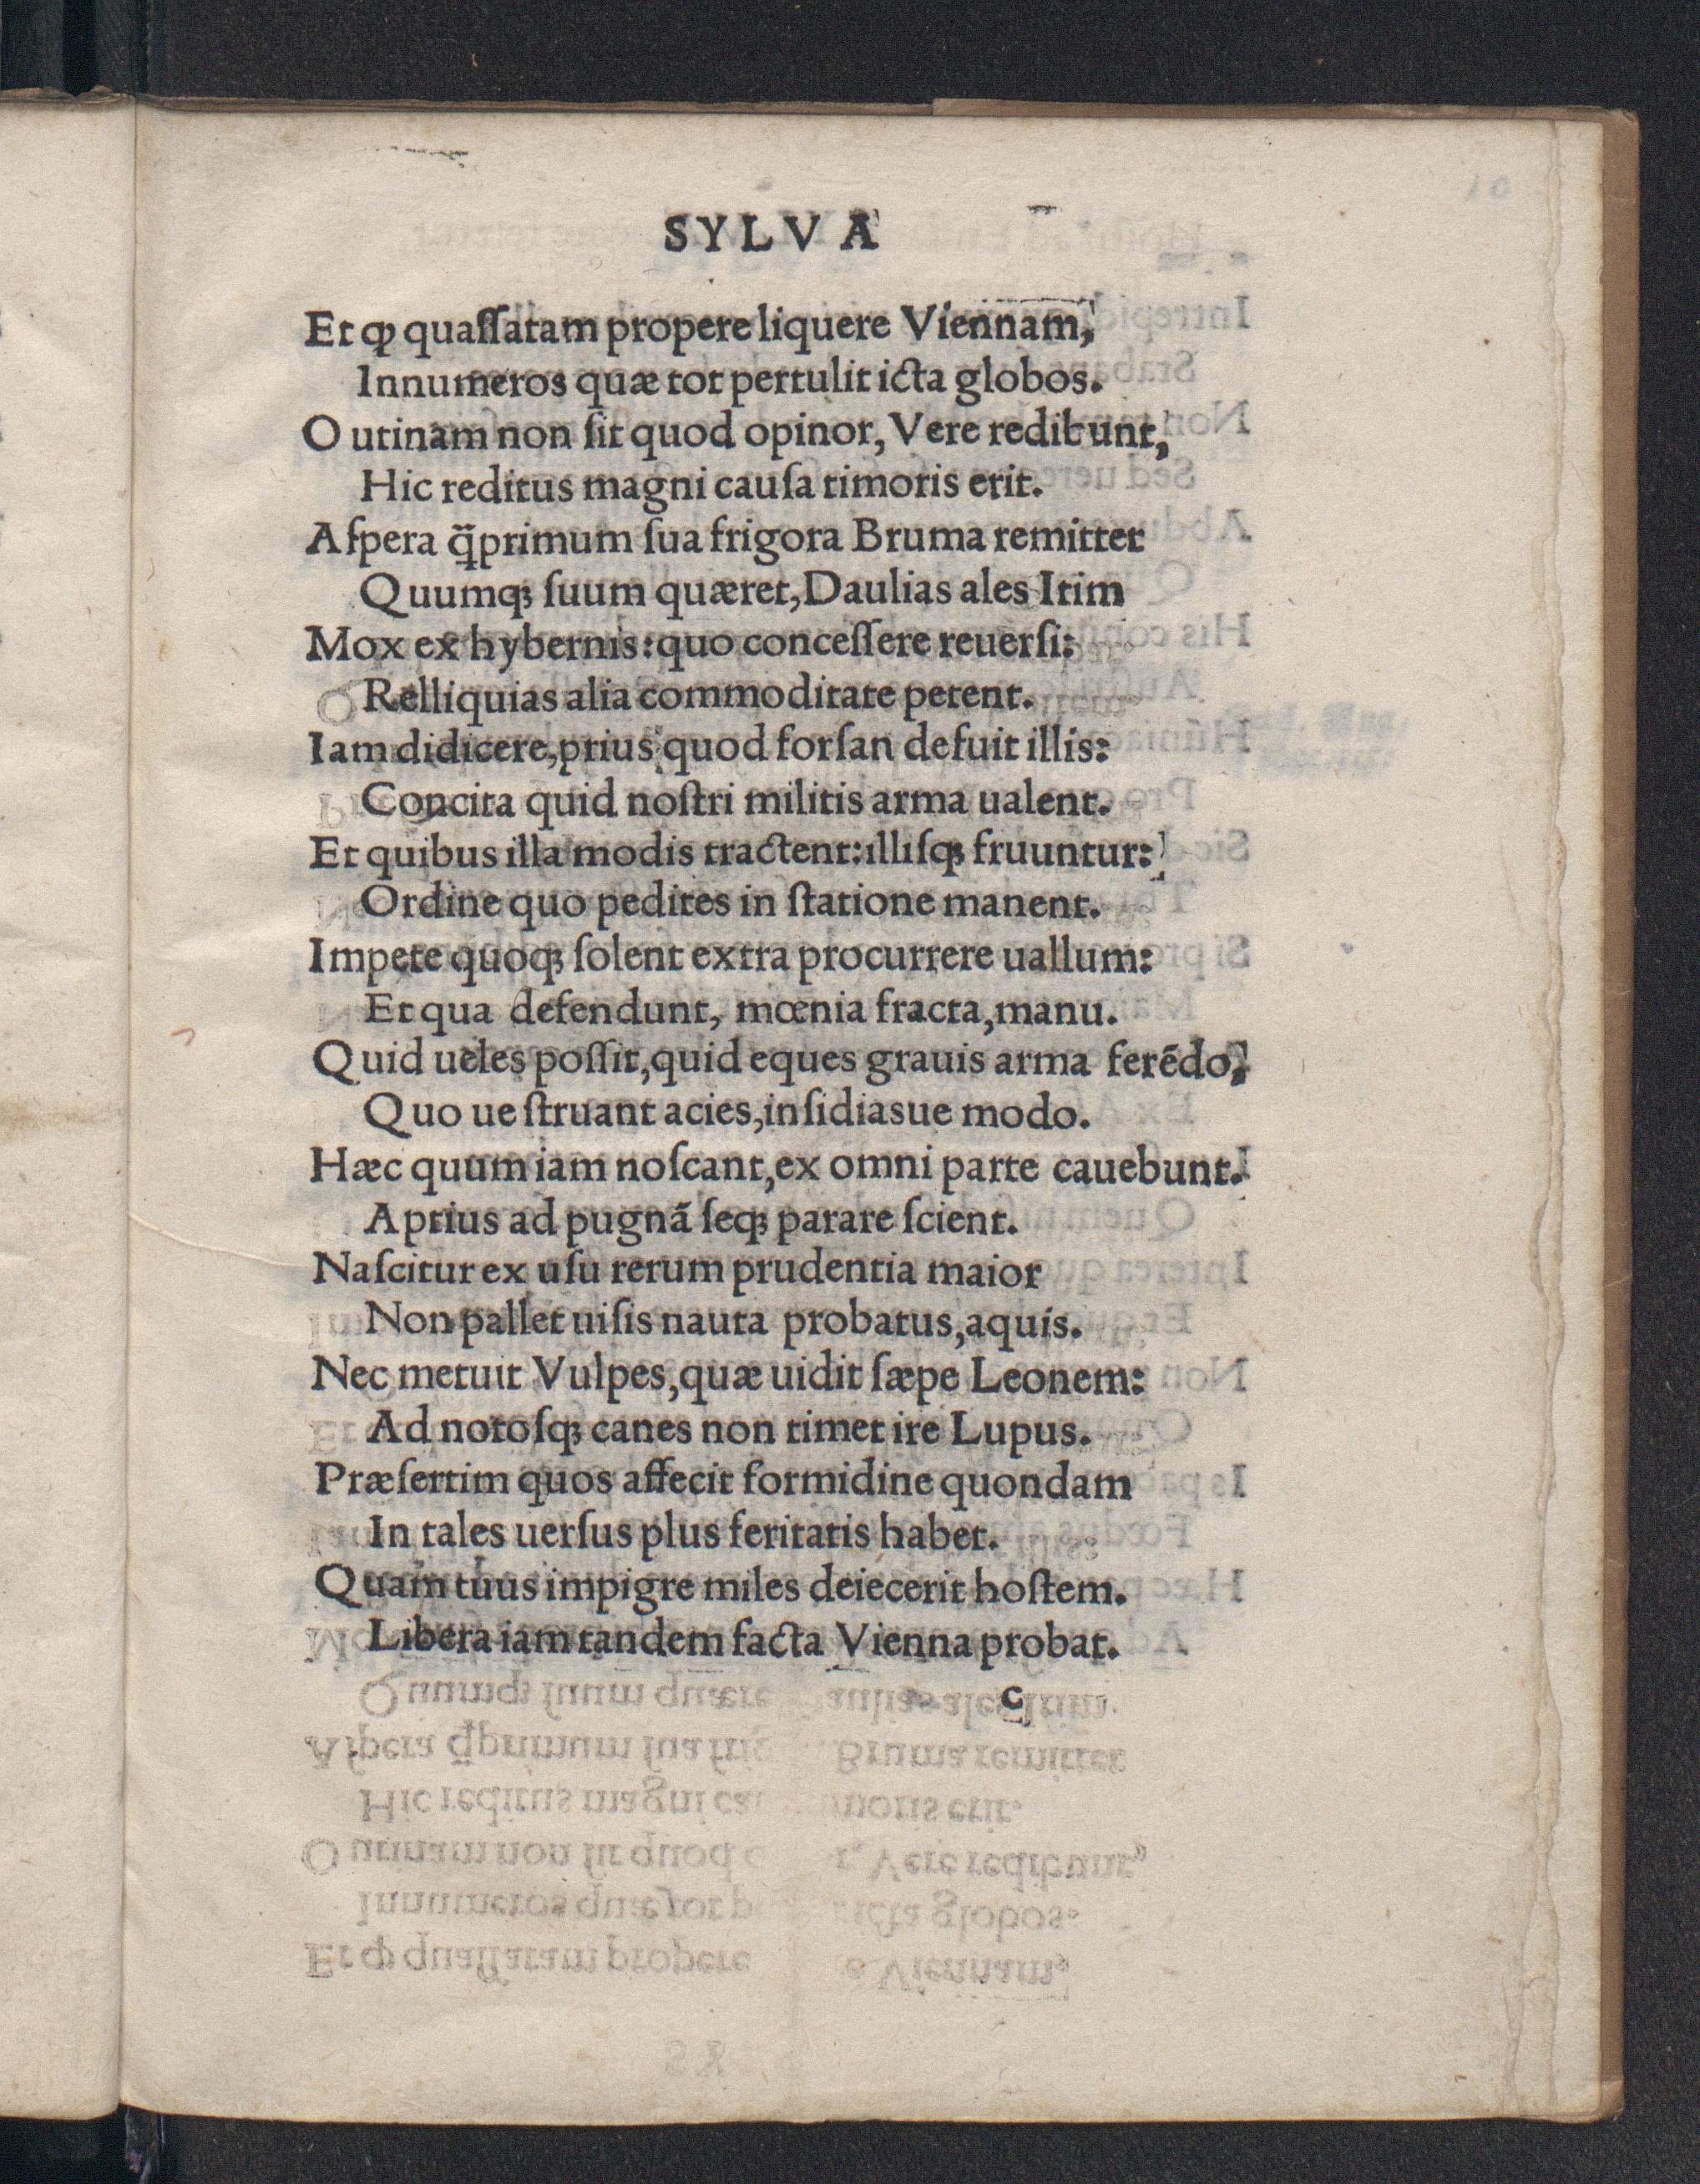 SYLVA
Et ꝙ quaſſatam propere liquere Viennam,
Innumeros quæ tot pertulit icta globos.
O utinam non ſit quod opinor, Vere redibunt,
Hic reditus magni cauſa timoris erit.
Aſpera q̃primum ſua frigora Bruma remittet
Quumqꝫ ſuum quæret, Daulias ales Itim
Mox ex hybernis: quo conceſſere reuerſi:
Relliquias alia commoditate petent.
Iam didicere, prius quod forſan defuit illis:
Concita quid noſtri militis arma ualent.
Et quibus illa modis tractent: illiſqꝫ fruuntur:
Ordine quo pedites in ſtatione manent.
Impete quoqꝫ ſolent extra procurrere uallum:
Et qua defendunt, mœnia fracta, manu.
Quid ueles poſſit, quid eques grauis arma ferēdo,
Quo ue ſtruant acies, inſidiasue modo.
Hæc quum iam noſcant, ex omni parte cauebunt.
Aptius ad pugnā ſeqꝫ parare ſcient.
Naſcitur ex uſu rerum prudentia maior
Non pallet uiſis nauta probatus, aquis.
Nec metuit Vulpes, quæ uidit ſæpe Leonem:
Ad notoſqꝫ canes non timet ire Lupus.
Præſertim quos affecit formidine quondam
In tales uerſus plus feritatis habet.
Quam tuus impigre miles deiecerit hoſtem.
Libera iam tandem facta Vienna probat.
c